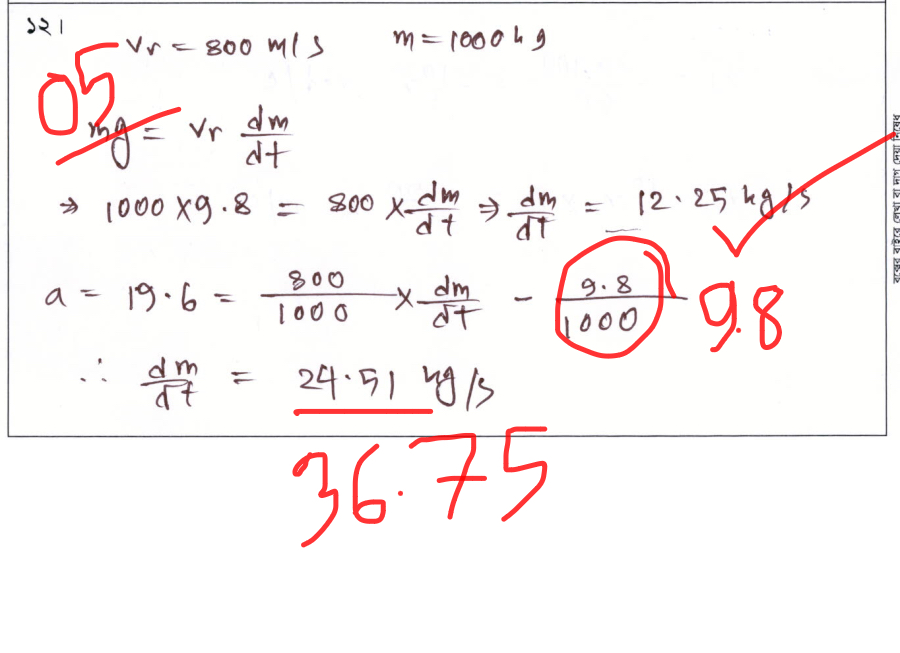 ১২।
Vr = 800 m/s m = 1000 kg
05
mg = Vr dm/dt
⇒ 1000 × 9.8 = 800 × dm/dt ⇒ dm/dt = 12.25 kg/s
a = 19.6 = 800/1000 × dm/dt - 9.8/1000 9.8
∴ dm/dt = 24.51 kg/s
36.75